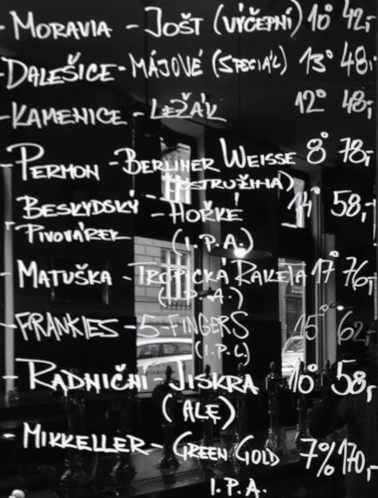 - MORAVIA - JOŠT (VÝČEPNÍ) 10° 42,-
- DALEŠICE - MÁJOVÉ (SPECIÁL) 13° 48,-
- KAMENICE - LEŽÁK 12° 48,-
- PERMON - BERLINER WEISSE 8° 78,-
(OSTRUŽINA)
BESKYDSKÝ - HOŘKÉ 14° 58,-
PIVOVÁREK (I.P.A.)
- MATUŠKA - TROPICKÁ RAKETA 17° 76,-
(I.P.A.)
- FRANKIES - 5-FINGERS 15° 62,-
(I.P.L.)
- RADNIČNÍ - JISKRA 10° 58,-
(ALE)
- MIKKELLER - GREEN GOLD 7% 170,-
I.P.A.